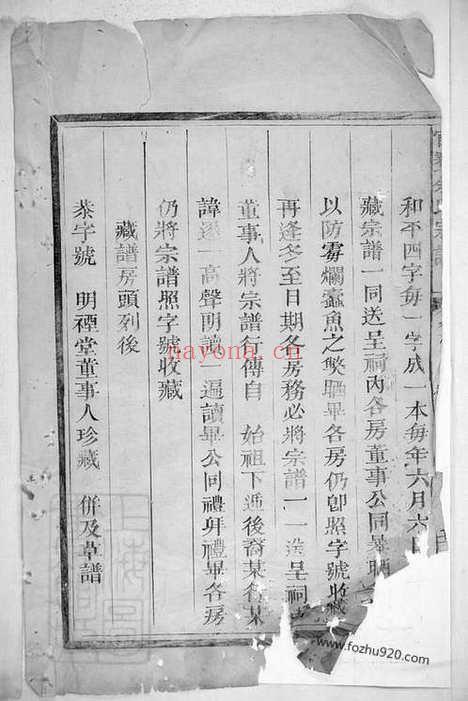 和平四字每一字成一本每年六月六日
藏宗譜一同送呈祠內各房董事公同晒
以防霉爛蠹魚之獘晒畢各房仍卽照字號收藏
再逢冬至日期各房務必將宗譜一一送呈祠
董事人將宗譜行傳自 始祖下遞後裔某行某
諱逐一高聲朗讀一遍讀畢公同禮拜禮畢各房
仍將宗譜照字號收藏
藏譜房頭列後
恭字號 明禋堂董事人珍藏 併及草譜
nayona.cn
www.fozhu920.com